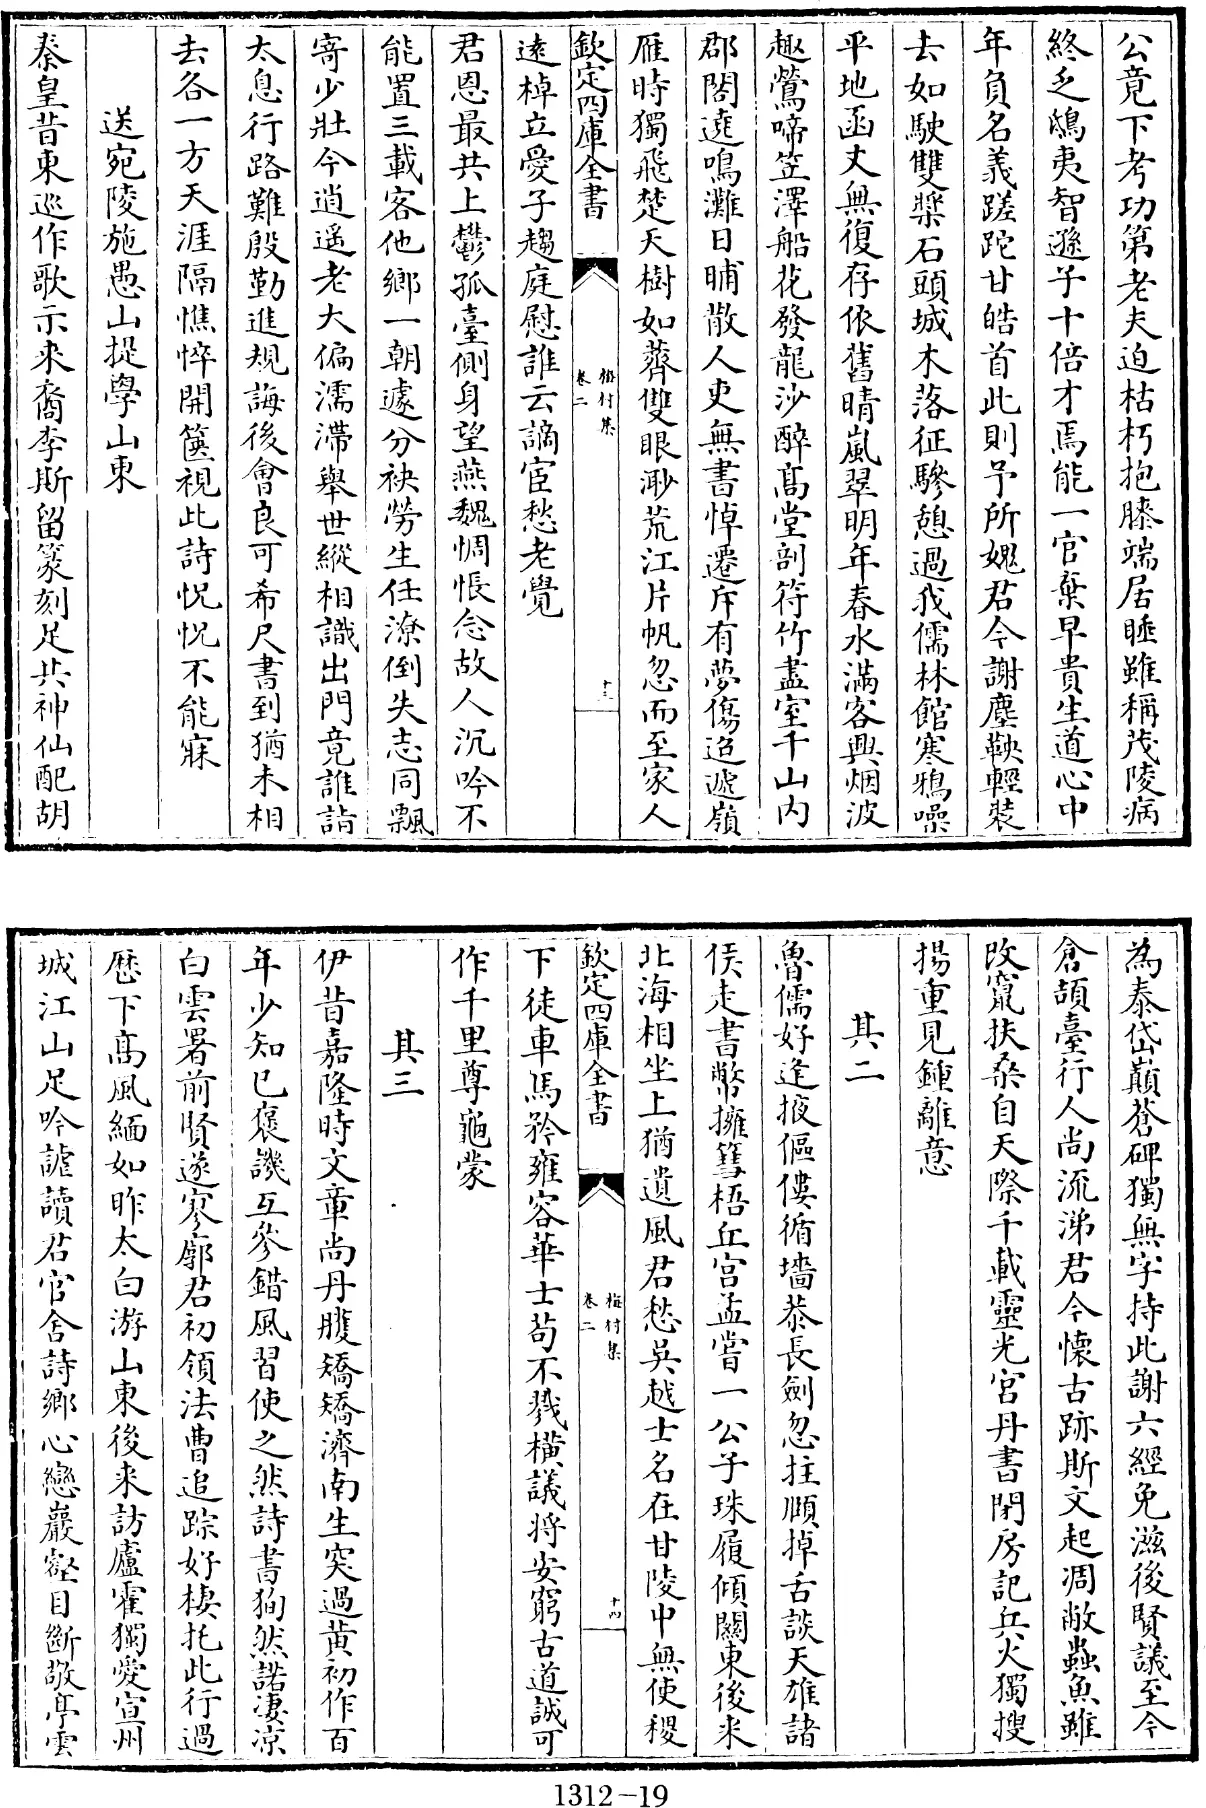 公竟下考功第老夫迫枯朽抱膝端居睡雖稱茂陵病
終乏鴟夷智遜子十倍才焉能一官棄早貴生道心中
年負名義蹉跎甘皓首此則予所媿君今謝塵鞅輕裝
去如駛雙槳石頭城木落征驂憩過我儒林館寒鴉噪
平地函丈無復存依舊晴嵐翠明年春水滿客興烟波
趣鶯啼笠澤船花發龍沙醉髙堂剖符竹盡室千山内
郡閣遶鳴灘日晡散人吏無書悼遷斥有夢傷迢遞嶺
雁時獨飛楚天樹如薺雙眼渺荒江片帆忽而至家人
欽定四庫全書
梅村集
卷二
十三
遠棹立愛子趨庭慰誰云謫宦愁老覺
君恩最共上鬱孤臺側身望燕魏惆悵念故人沉吟不
能置三載客他鄉一朝遽分袂勞生任潦倒失志同飄
寄少壯今逍遙老大偏濡滯舉世縱相識出門竟誰詣
太息行路難殷勤進規誨後會良可希尺書到猶未相
去各一方天涯隔憔悴開篋視此詩怳怳不能寐
送宛陵施愚山提學山東
秦皇昔東巡作歌示来裔李斯留篆刻足共神仙配胡
為泰岱巔蒼碑獨無字持此謝六經免滋後賢議至今
倉頡臺行人尚流涕君今懐古跡斯文起凋敝蟲魚雖
改竄扶桑自天際千載靈光宫丹書閉房記兵火獨搜
揚重見鍾離意
其二
魯儒好逢掖傴僂循墻恭長劍忽拄頤掉舌談天雄諸
侯走書幣擁篲梧丘宫孟嘗一公子珠履傾關東後来
北海相坐上猶遺風君愁吳越士名在甘陵中無使稷
欽定四庫全書
梅村集
卷二
十四
下徒車馬矜雍容華士苟不戮横議将安窮古道誠可
作千里尊龜蒙
其三
伊昔嘉隆時文章尚丹雘矯矯濟南生突過黄初作百
年少知已褒譏互參錯風習使之然詩書徇然諾凄凉
白雲署前賢遂寥廓君初領法曹追踪好棲托此行過
歴下髙風緬如昨太白游山東後来訪廬霍獨愛宣州
城江山足吟謔讀君官舍詩鄉心戀巖壑目斷敬亭雲
1312-19